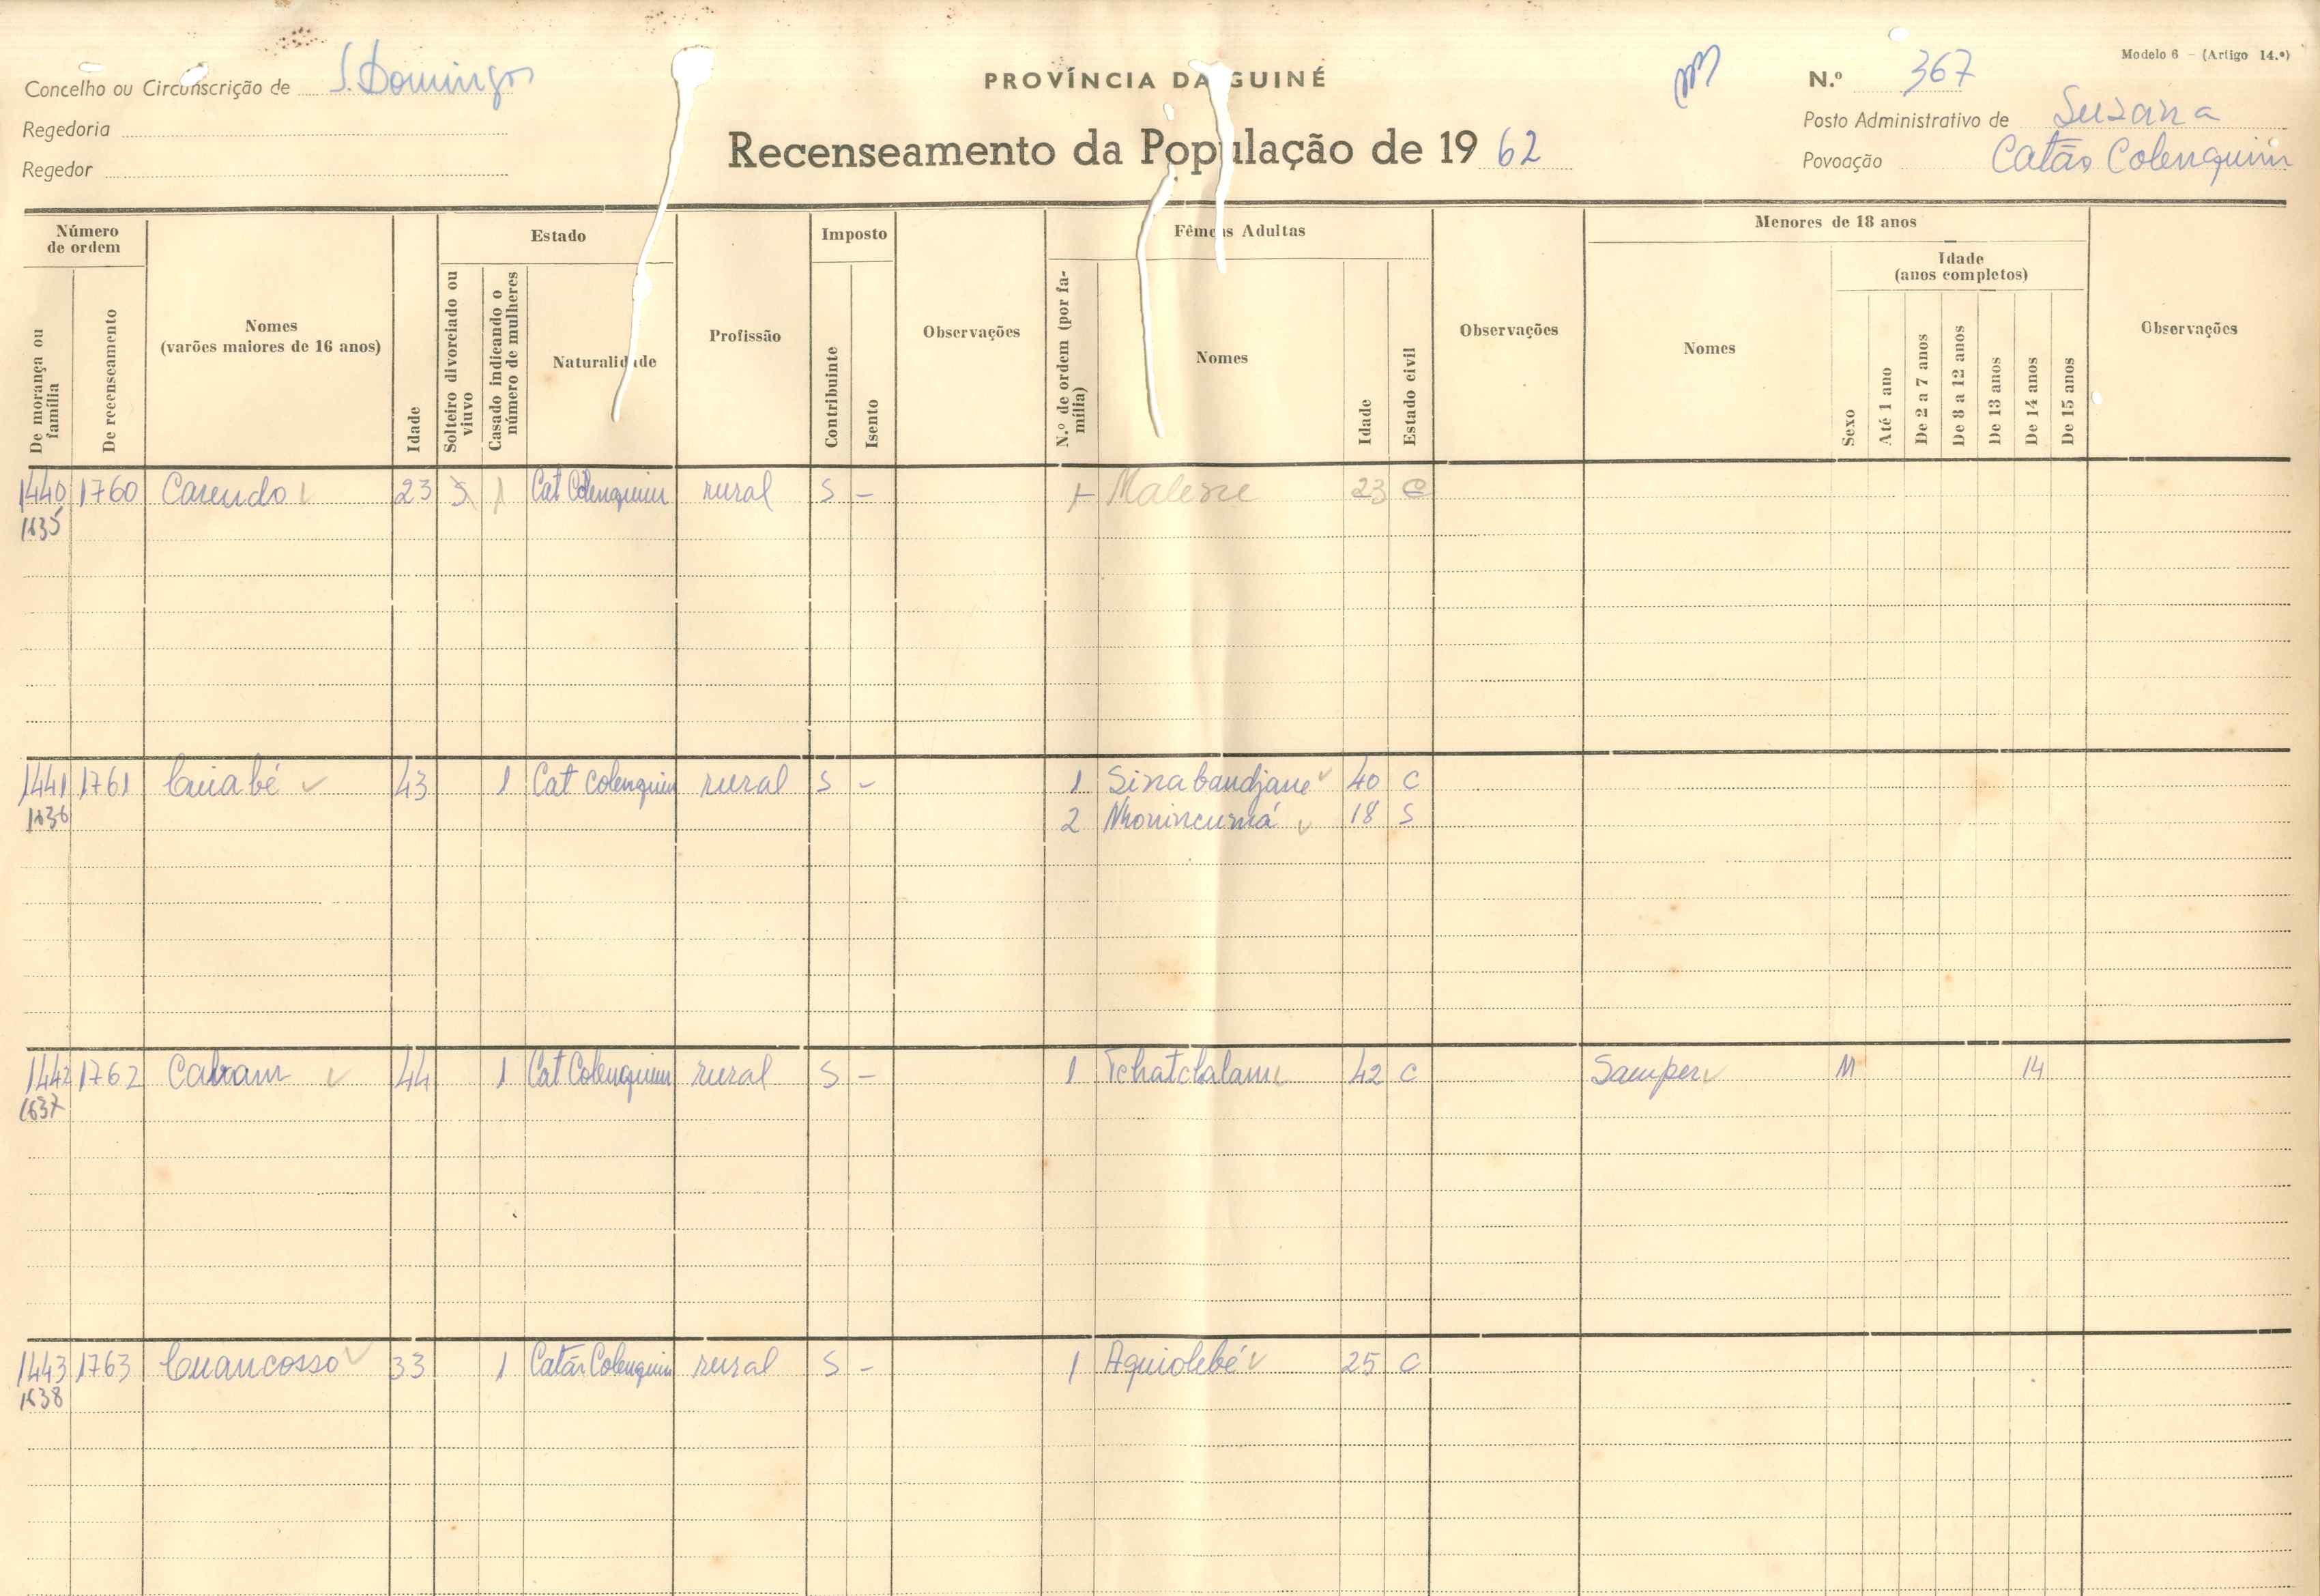 Modelo 6 — (Artigo 14.º)
Concelho ou Circunscrição de S. Domingos
PROVÍNCIA DA GUINÉ
N.º 367
Regedoria
Recenseamento da População de 1962
Posto Administrativo de Suzana
Regedor
Povoação Catão Colenquim
Número de ordem
De morança ou família
De recenseamento
Nomes (varões maiores de 16 anos)
Idade
Estado
Solteiro divorciado ou viuvo
Casado indicando o número de mulheres
Naturalidade
Profissão
Imposto
Contribuinte
Isento
Observações
Fêmeas Adultas
N.º de ordem (por família)
Nomes
Idade
Estado civil
Observações
Menores de 18 anos
Nomes
Sexo
Idade (anos completos)
Até 1 ano
De 2 a 7 anos
De 8 a 12 anos
De 13 anos
De 14 anos
De 15 anos
Observações
1440 1760 Casendo 23 S 1 Cat Colenquim rural S - 1 Malene 23 C
1635
1441 1761 Cuiabé 43 1 Cat Colenquim rural S - 1 Sinabandjane 40 C
1636 2 18 S
1442 1762 Cabam 44 1 Cat Colenquim rural S - 1 42 C Samper M 14
1637
1443 1763 Cuancosso 33 1 Catão Colenquim rural S - 1 Aquiolebé 25 C
1638